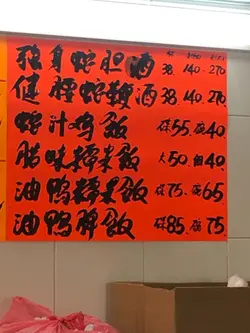 獨身蛇胆酒 38. 140. 270
健 蛇鞭酒 38. 140. 270.
蛇汁鸡飯 碟55. 碗40
腊味糯米飯 大50. 細40.
油鴨糯米飯 碟75. 碗65
油鴨脾飯 碟85. 碗75.